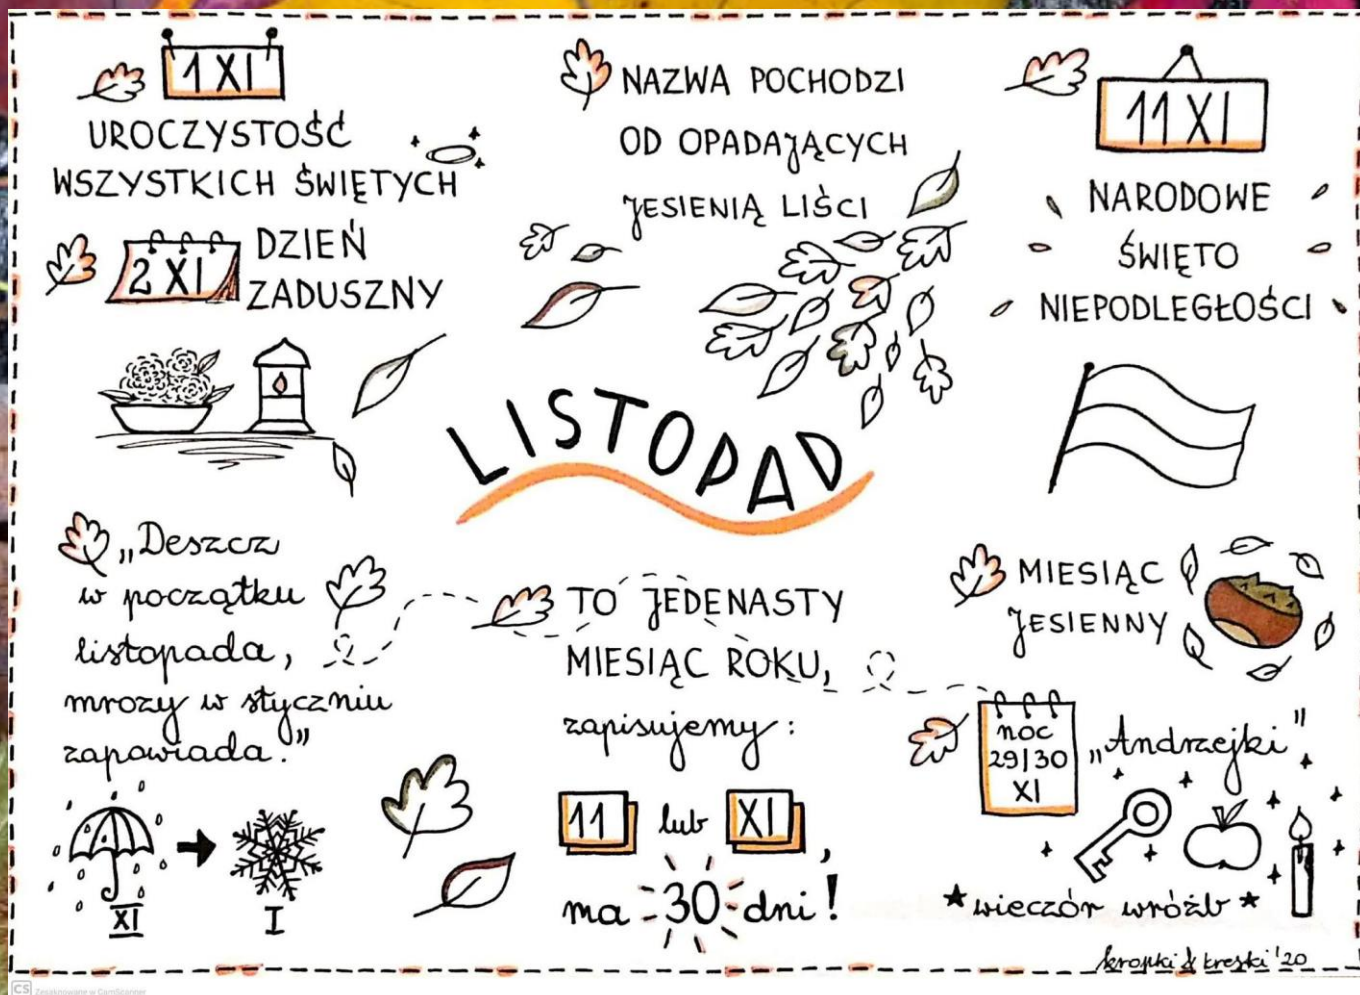 1 XI
UROCZYSTOŚĆ
WSZYSTKICH ŚWIĘTYCH
2 XI
DZIEŃ
ZADUSZNY
NAZWA POCHODZI
OD OPADAJĄCYCH
JESIENIĄ LIŚCI
11 XI
NARODOWE
ŚWIĘTO
NIEPODLEGŁOŚCI
LISTOPAD
„Deszcz
w początku
listopada,
mrozy w styczniu
zapowiada.”
XI
I
TO JEDENASTY
MIESIĄC ROKU,
zapisujemy:
11 lub XI,
ma 30 dni!
MIESIĄC
JESIENNY
noc
29/30
XI
„Andrzejki”
*wieczór wróżb*
kropki & kreski '20
CS Zeskanowane w CamScanner